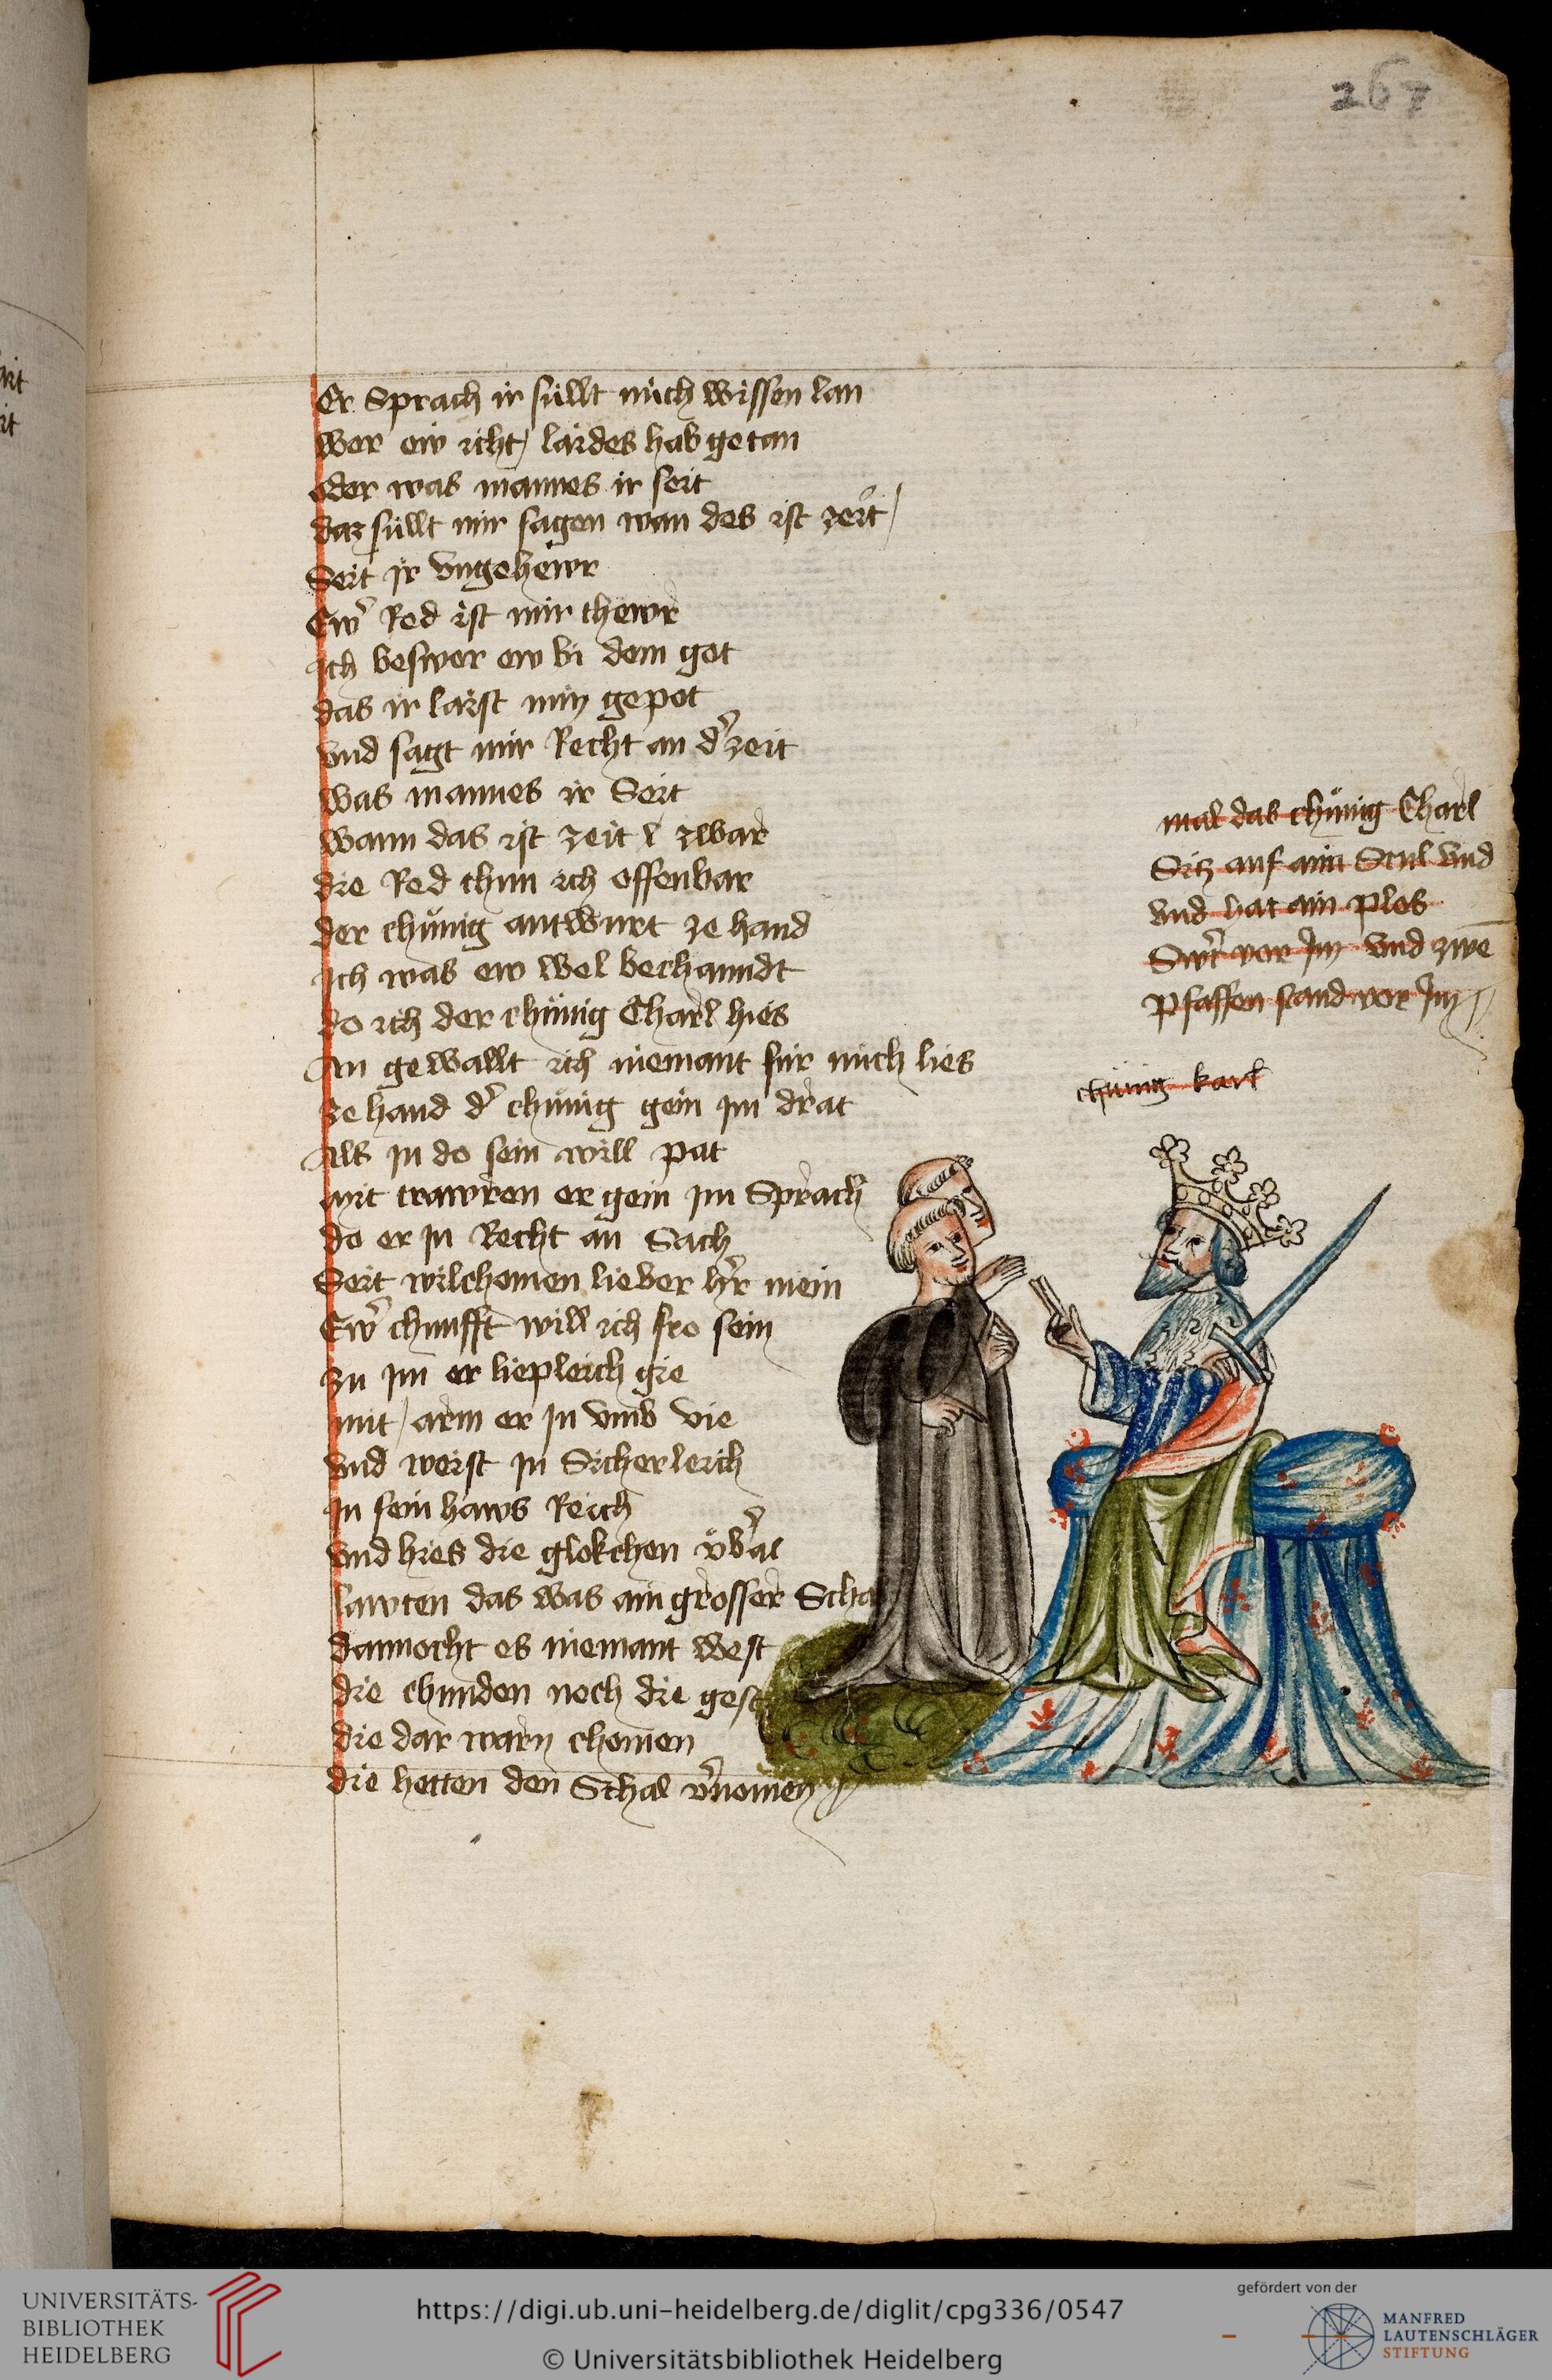 267
Er Sprach ir süllt mich wissen lan
wer ew icht laides hab getan
Oder was mannes ir seit
daz süllt mir sagen wan des ist zeit
Seit ir vngehewr
Ew̓ Red ist mir thewr
ich beswer ew bi dem got
das ir laist min gepot
vnd sagt mir Recht an d̓ zeit
was mannes ir Seit
wann das ist zeit zwar
die Red thun ich offenbar
der chünig antwurt ze hand
ich was ew wol bechanndt
do ich der chünig Charl hies
An gewallt ich niemant für mich lies
ze hand d̓ chünig gein im drat
Als in do sein will pat
mit trawren er gein im Sprach
do er in Recht an Sach
Seit wilchomen lieber hr̓ mein
Ew̓ chunfft will ich fro sein
zu im er liepleich gie
mit arm er in vmb vie
vnd weist in Sicherleich
in sein haws Reich
vnd hies die glokchen vb̓al
lawten das was ain grosser Scha
dannocht es niemant west
die chunden noch die gest
die dar warn chomen
die hetten den Schal v̓nomen
mal das chünig Charl
Sitz auf aim Stul vnd
vnd hat ain plos
Swt̓ vor Im vnd zwē
pfaffen stand vor Im
chünig karl
UNIVERSITÄTS-
BIBLIOTHEK
HEIDELBERG
https://digi.ub.uni-heidelberg.de/diglit/cpg336/0547
© Universitätsbibliothek Heidelberg
gefördert von der
MANFRED
LAUTENSCHLÄGER
STIFTUNG